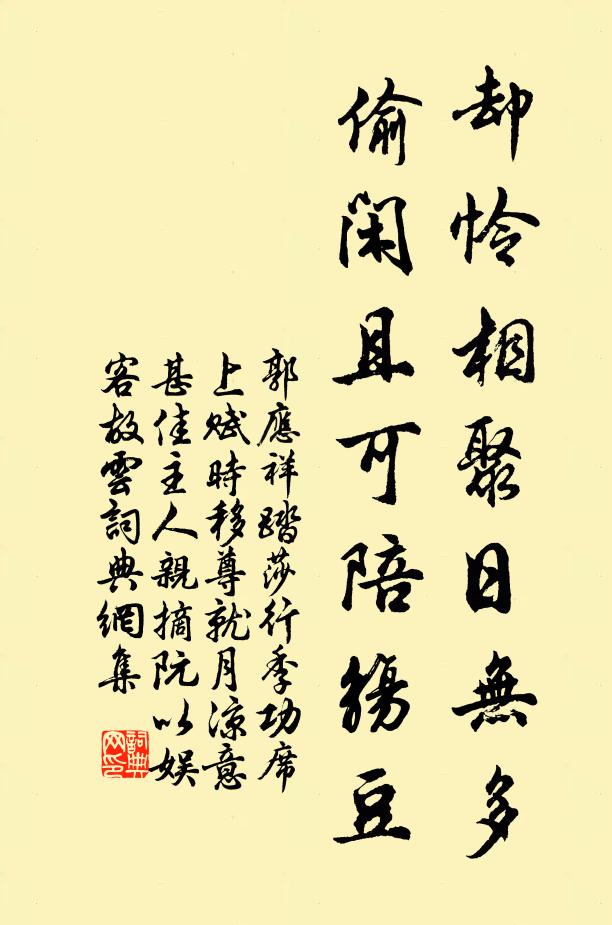 却怜相聚日無多
偷閑且可陪觴豆
郭應祥踏莎行季功席
上賦時移尊就月涼意
甚佳主人親摘阮以娱
客故雲詞典網集
詞典網印